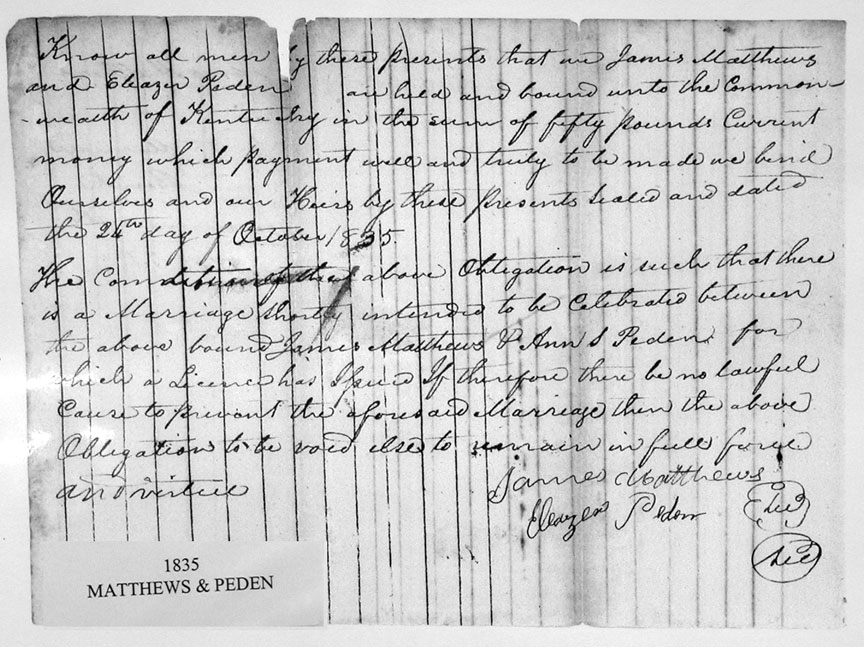 Know all men by these presents that we James Matthews
and Eleazer Peden are held and bound unto the Common-
-wealth of Kentucky in the sum of fifty pounds Current
money which payment well and truly to be made we bind
Ourselves and our Heirs by these presents Sealed and dated
the 24th day of October 1835.
The Condition of the above Obligation is such that there
is a Marriage shortly intended to be Celebrated between
the above bound James Matthews & Ann S Peden for
which a Licence has Issued If therefore there be no lawful
Cause to prevent the aforesaid Marriage then the above
Obligation to be void else to remain in full force
and virtue
James Matthews
Eleazer Peden
1835
MATTHEWS & PEDEN